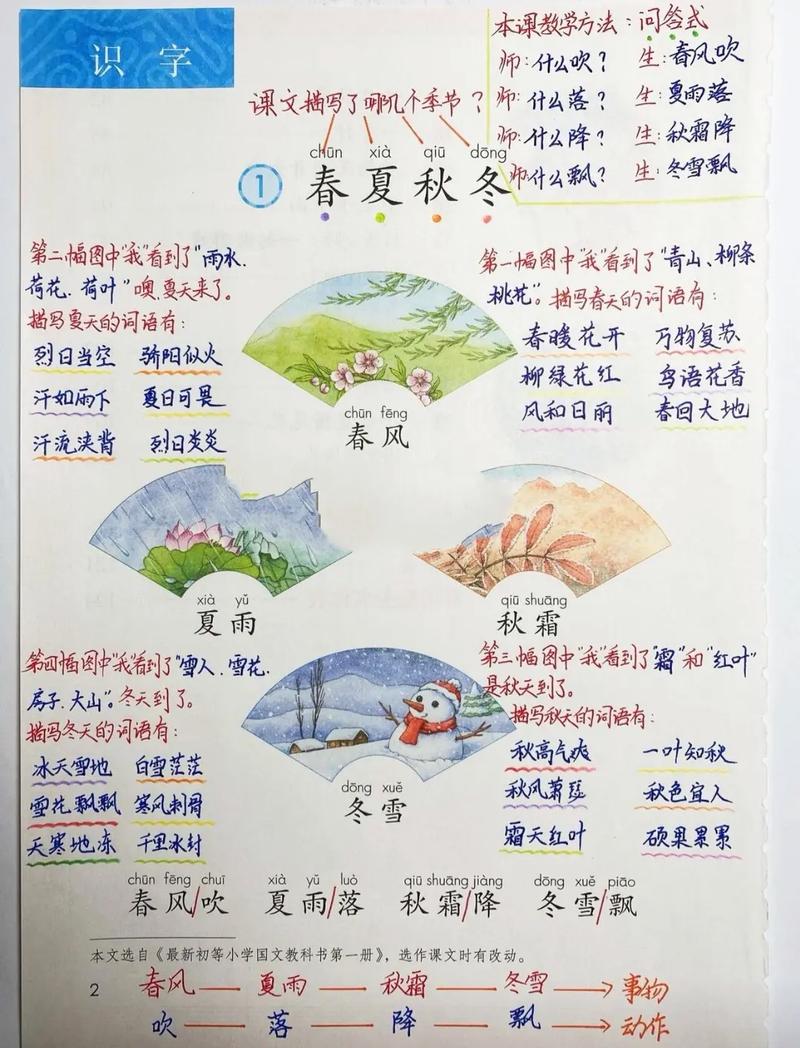 识字
本课教学方法：问答式
师：什么吹？ 生：春风吹
师：什么落？ 生：夏雨落
师：什么降？ 生：秋霜降
师什么飘？ 生：冬雪飘
课文描写了哪几个季节？
chūn xià qiū dōng
1 春夏秋冬
第二幅图中“我”看到了“雨水、
荷花、荷叶”噢，夏天来了。
描写夏天的词语有：
烈日当空 骄阳似火
汗如雨下 夏日可畏
汗流浃背 烈日炎炎
第一幅图中“我”看到了“青山、柳条
桃花”。描写春天的词语有：
春暖花开 万物复苏
柳绿花红 鸟语花香
风和日丽 春回大地
chūn fēng
春风
xià yǔ
夏雨
qiū shuāng
秋霜
第四幅图中“我”看到了“雪人、雪花、
房子、大山”。冬天到了。
描写冬天的词语有：
冰天雪地 白雪茫茫
雪花飘飘 寒风刺骨
天寒地冻 千里冰封
第三幅图中“我”看到了“霜”和“红叶”
是秋天到了。
描写秋天的词语有：
秋高气爽 一叶知秋
秋风萧瑟 秋色宜人
霜天红叶 硕果累累
dōng xuě
冬雪
chūn fēng chuī xià yǔ luò qiū shuāng jiàng dōng xuě piāo
春风/吹 夏雨/落 秋霜/降 冬雪/飘
本文选自《最新初等小学国文教科书第一册》，选作课文时有改动。
2
春风 — 夏雨 — 秋霜 — 冬雪 → 事物
吹 — 落 — 降 — 飘 → 动作